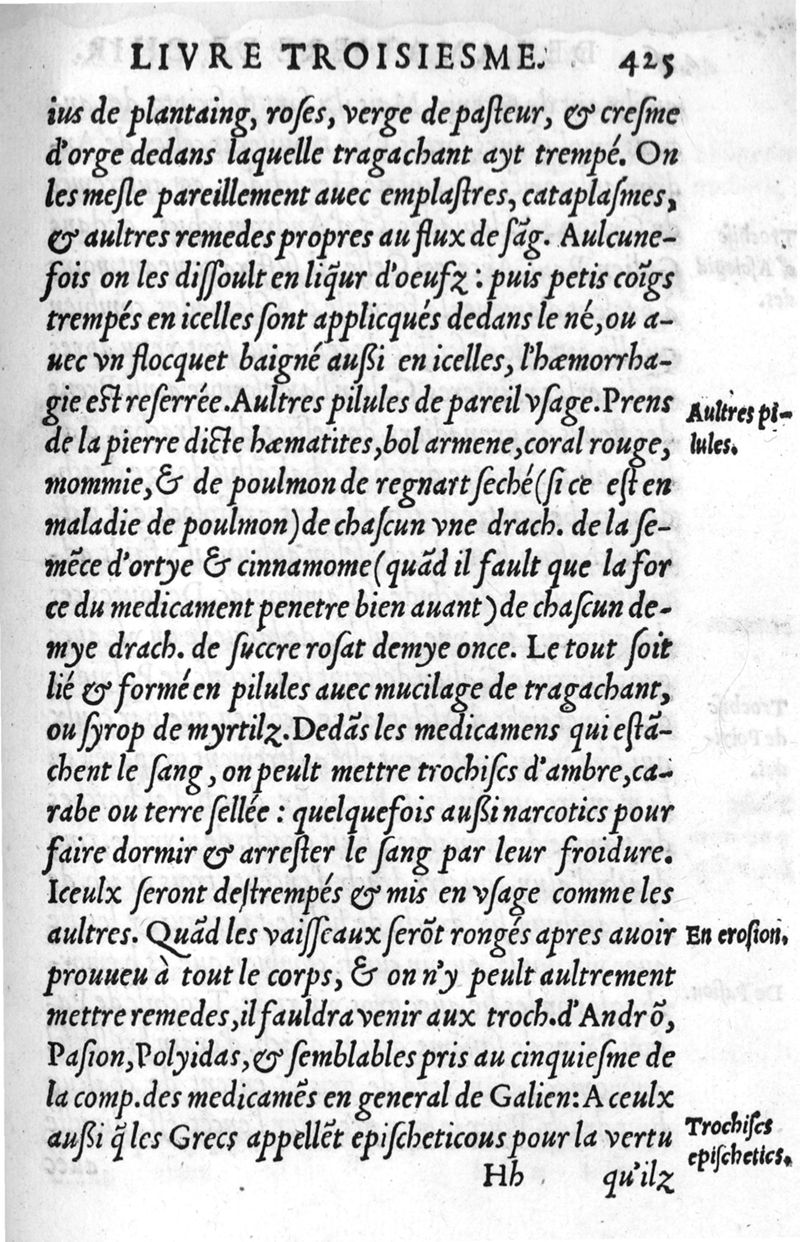 LIVRE TROISIESME. 425
ius de plantaing, roſes, verge de paſteur, & creſme
d'orge dedans laquelle tragachant ayt trempé. On
les meſle pareillement auec emplaſtres, cataplaſmes,
& aultres remedes propres au flux de ſãg. Aulcune-
fois on les diſſoult en liq̃ur d'oeufz : puis petis coĩgs
trempés en icelles ſont applicqués dedans le né, ou a-
uec vn flocquet baigné außi en icelles, l'hæmorrha-
gie eſt reſerrée. Aultres pilules de pareil vſage. Prens
Aultres pi-
de la pierre dicte hæmatites, bol armene, coral rouge,
lules.
mommie, & de poulmon de regnart ſeché (ſi ce eſt en
maladie de poulmon) de chaſcun vne drach. de la ſe-
mẽce d'ortye & cinnamome (quãd il fault que la for
ce du medicament penetre bien auant) de chaſcun de-
mye drach. de ſuccre roſat demye once. Le tout ſoit
lié & formé en pilules auec mucilage de tragachant,
ou ſyrop de myrtilz. Dedãs les medicamens qui eſtã-
chent le ſang, on peult mettre trochiſcs d'ambre, ca-
rabe ou terre ſellée : quelquefois außi narcotics pour
faire dormir & arreſter le ſang par leur froidure.
Iceulx ſeront deſtrempés & mis en vſage comme les
aultres. Quãd les vaiſſeaux ſerõt rongés apres auoir
En eroſion.
prouueu à tout le corps, & on n'y peult aultrement
mettre remedes, il fauldra venir aux troch. d'Andrõ,
Paſion, Polyidas, & ſemblables pris au cinquieſme de
la comp. des medicamẽs en general de Galien: A ceulx
außi q̃ les Grecs appellẽt epiſcheticous pour la vertu
Trochiſcs
epiſchetics.
Hh qu'ilz